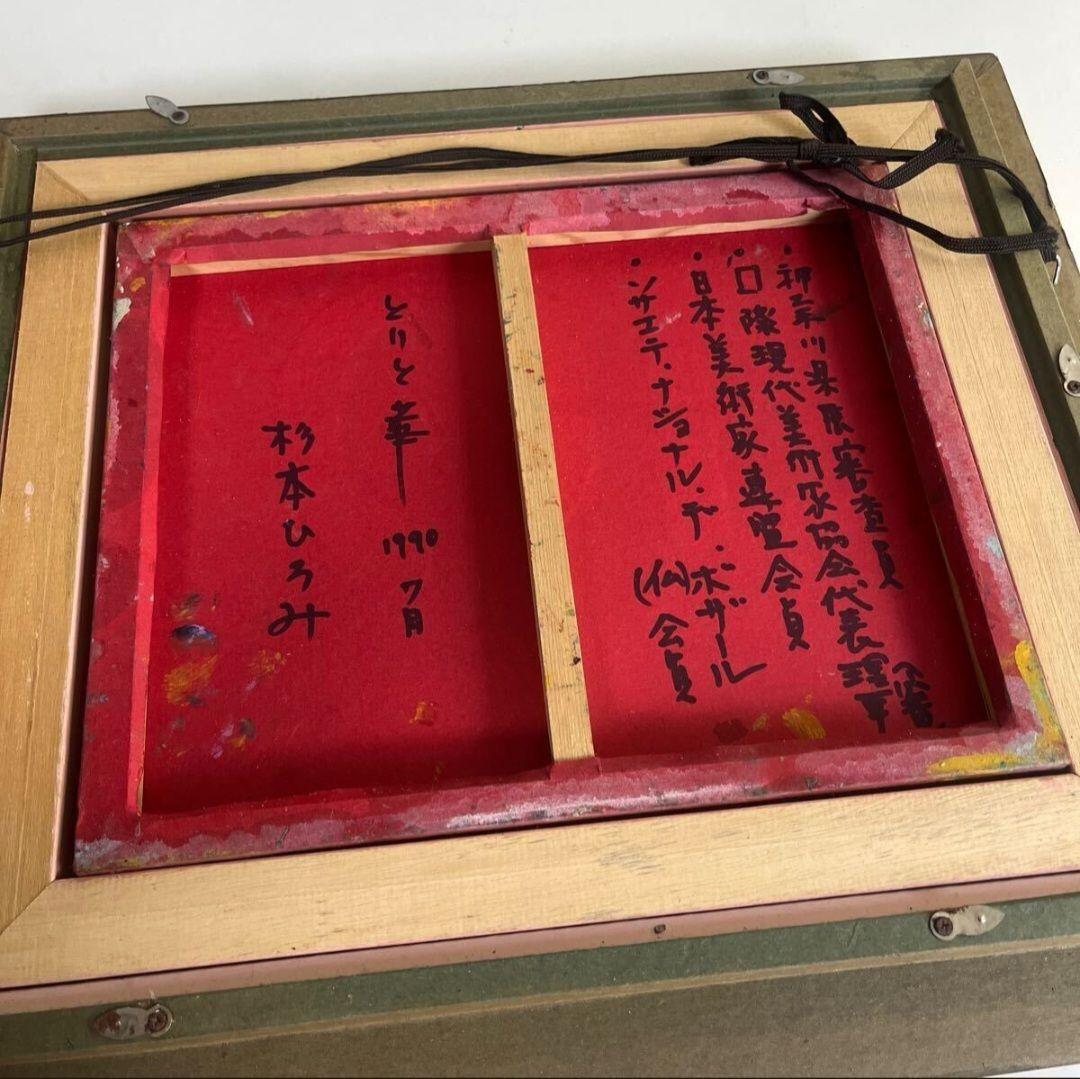 ・神奈川県展審査員
・国際現代美術家協会代表理事
・日本美術家連盟会員
・ソサエテ・ナショナル・デ・ボザール
(仏)会員
とりと華 1990 7月
杉本ひろみ